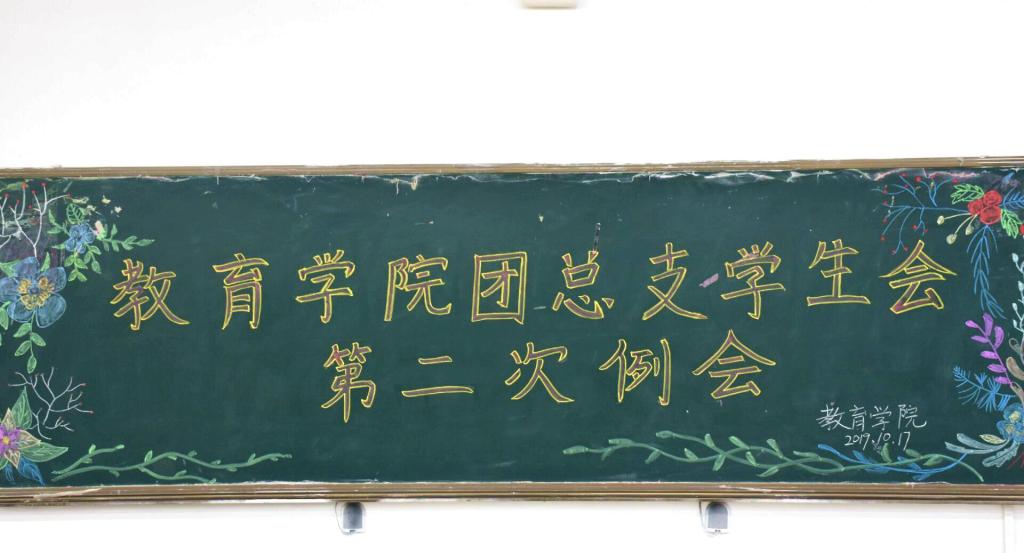 教育学院团总支学生会
第二次例会
教育学院
2019.10.17